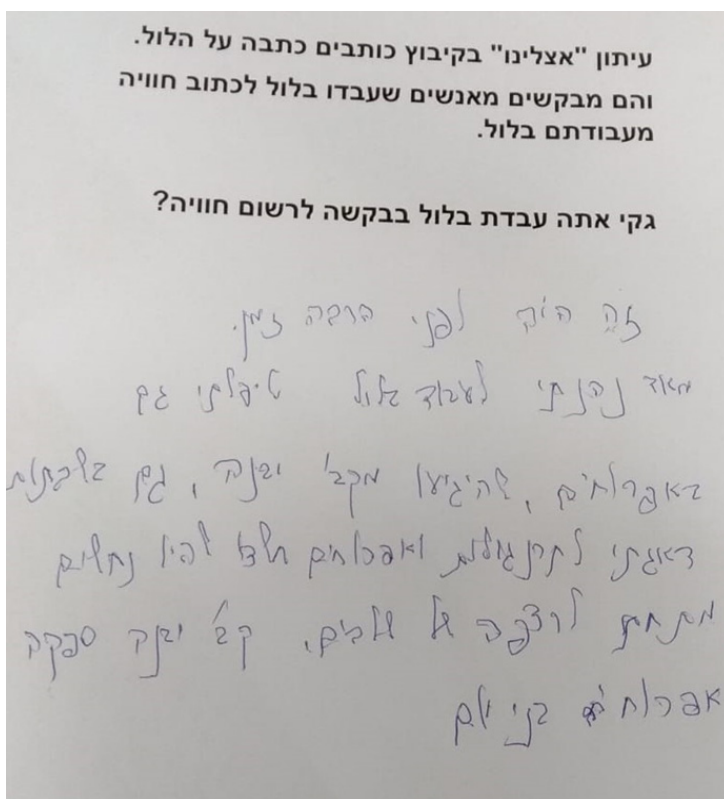 עיתון "אצלינו" בקיבוץ כותבים כתבה על הלול.
והם מבקשים מאנשים שעבדו בלול לכתוב חוויה
מעבודתם בלול.
גקי אתה עבדת בלול בבקשה לרשום חוויה?
זה היה לפני הרבה זמן.
מאד נהנתי לעבוד בלול טיפלתי גם
באפרוחים, שהיגיעו מקב' יבנה, גם בשבתות
דאגתי לתרנגולות ואפרוחים להיו
מתחת לרצפה של שלבים. קב' יבנה ספקה
אפרוחים בני יום